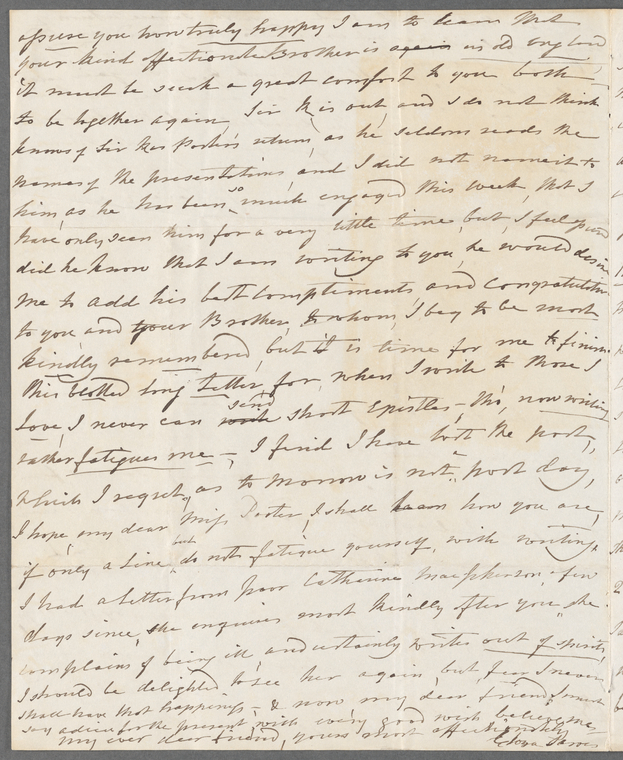 assure you how truly happy I am to learn that
your kind affectionate Brother is again in old England
it must be such a great comfort to you both
to be together again Sir K is out, and I do not think
knows of Sir Kes Porter's return, as he seldom reads the
names of the presentations, and I did not name it to
him, as he has been so much engaged this week, that I
have only seen him for a very little time, but, I feel
did he know that I am writing to you, he would desire
me to add his best Compliments and Congratulations
to you, and your Brother, to whom, I beg to be most
kindly remembered, but it is time for me to finish
this blotted long Letter, for, when I write to those I
Love, I never can send short Epistles, tho', now writing
rather fatigues me —, I find I have lost the post,
which I regret, as to morrow is not a post day,
I hope, my dear Miss Porter, I shall learn how you are,
if only a Line, but do not fatigue yourself, with writing,
I had a Letter from poor Catherine Macpherson, few
days since, she enquires most kindly after you, she
complains of being ill, and certainly writes out of spirits,
I should be delighted to see her again, but, fear I never
shall have that happiness, & now my dear friend I must
say adieu for the present, with every good wish believe me,
my ever dear friend, yours most affectionately
Eliza